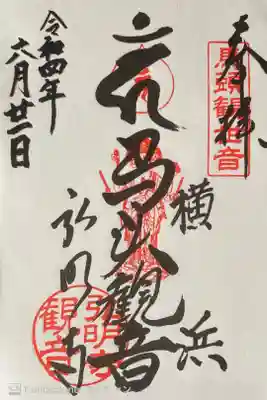 奉拝
馬頭観世音
横浜
馬頭観音
弘明寺
弘明寺
観音
令和四年
六月廿一日